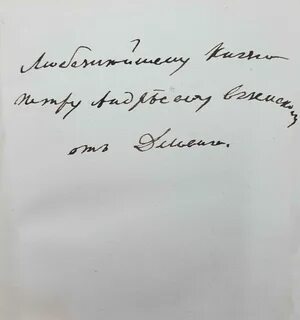 Любезнѣйшему Князю
Петру Андрѣевичу Вяземскому
отъ Дельвига.